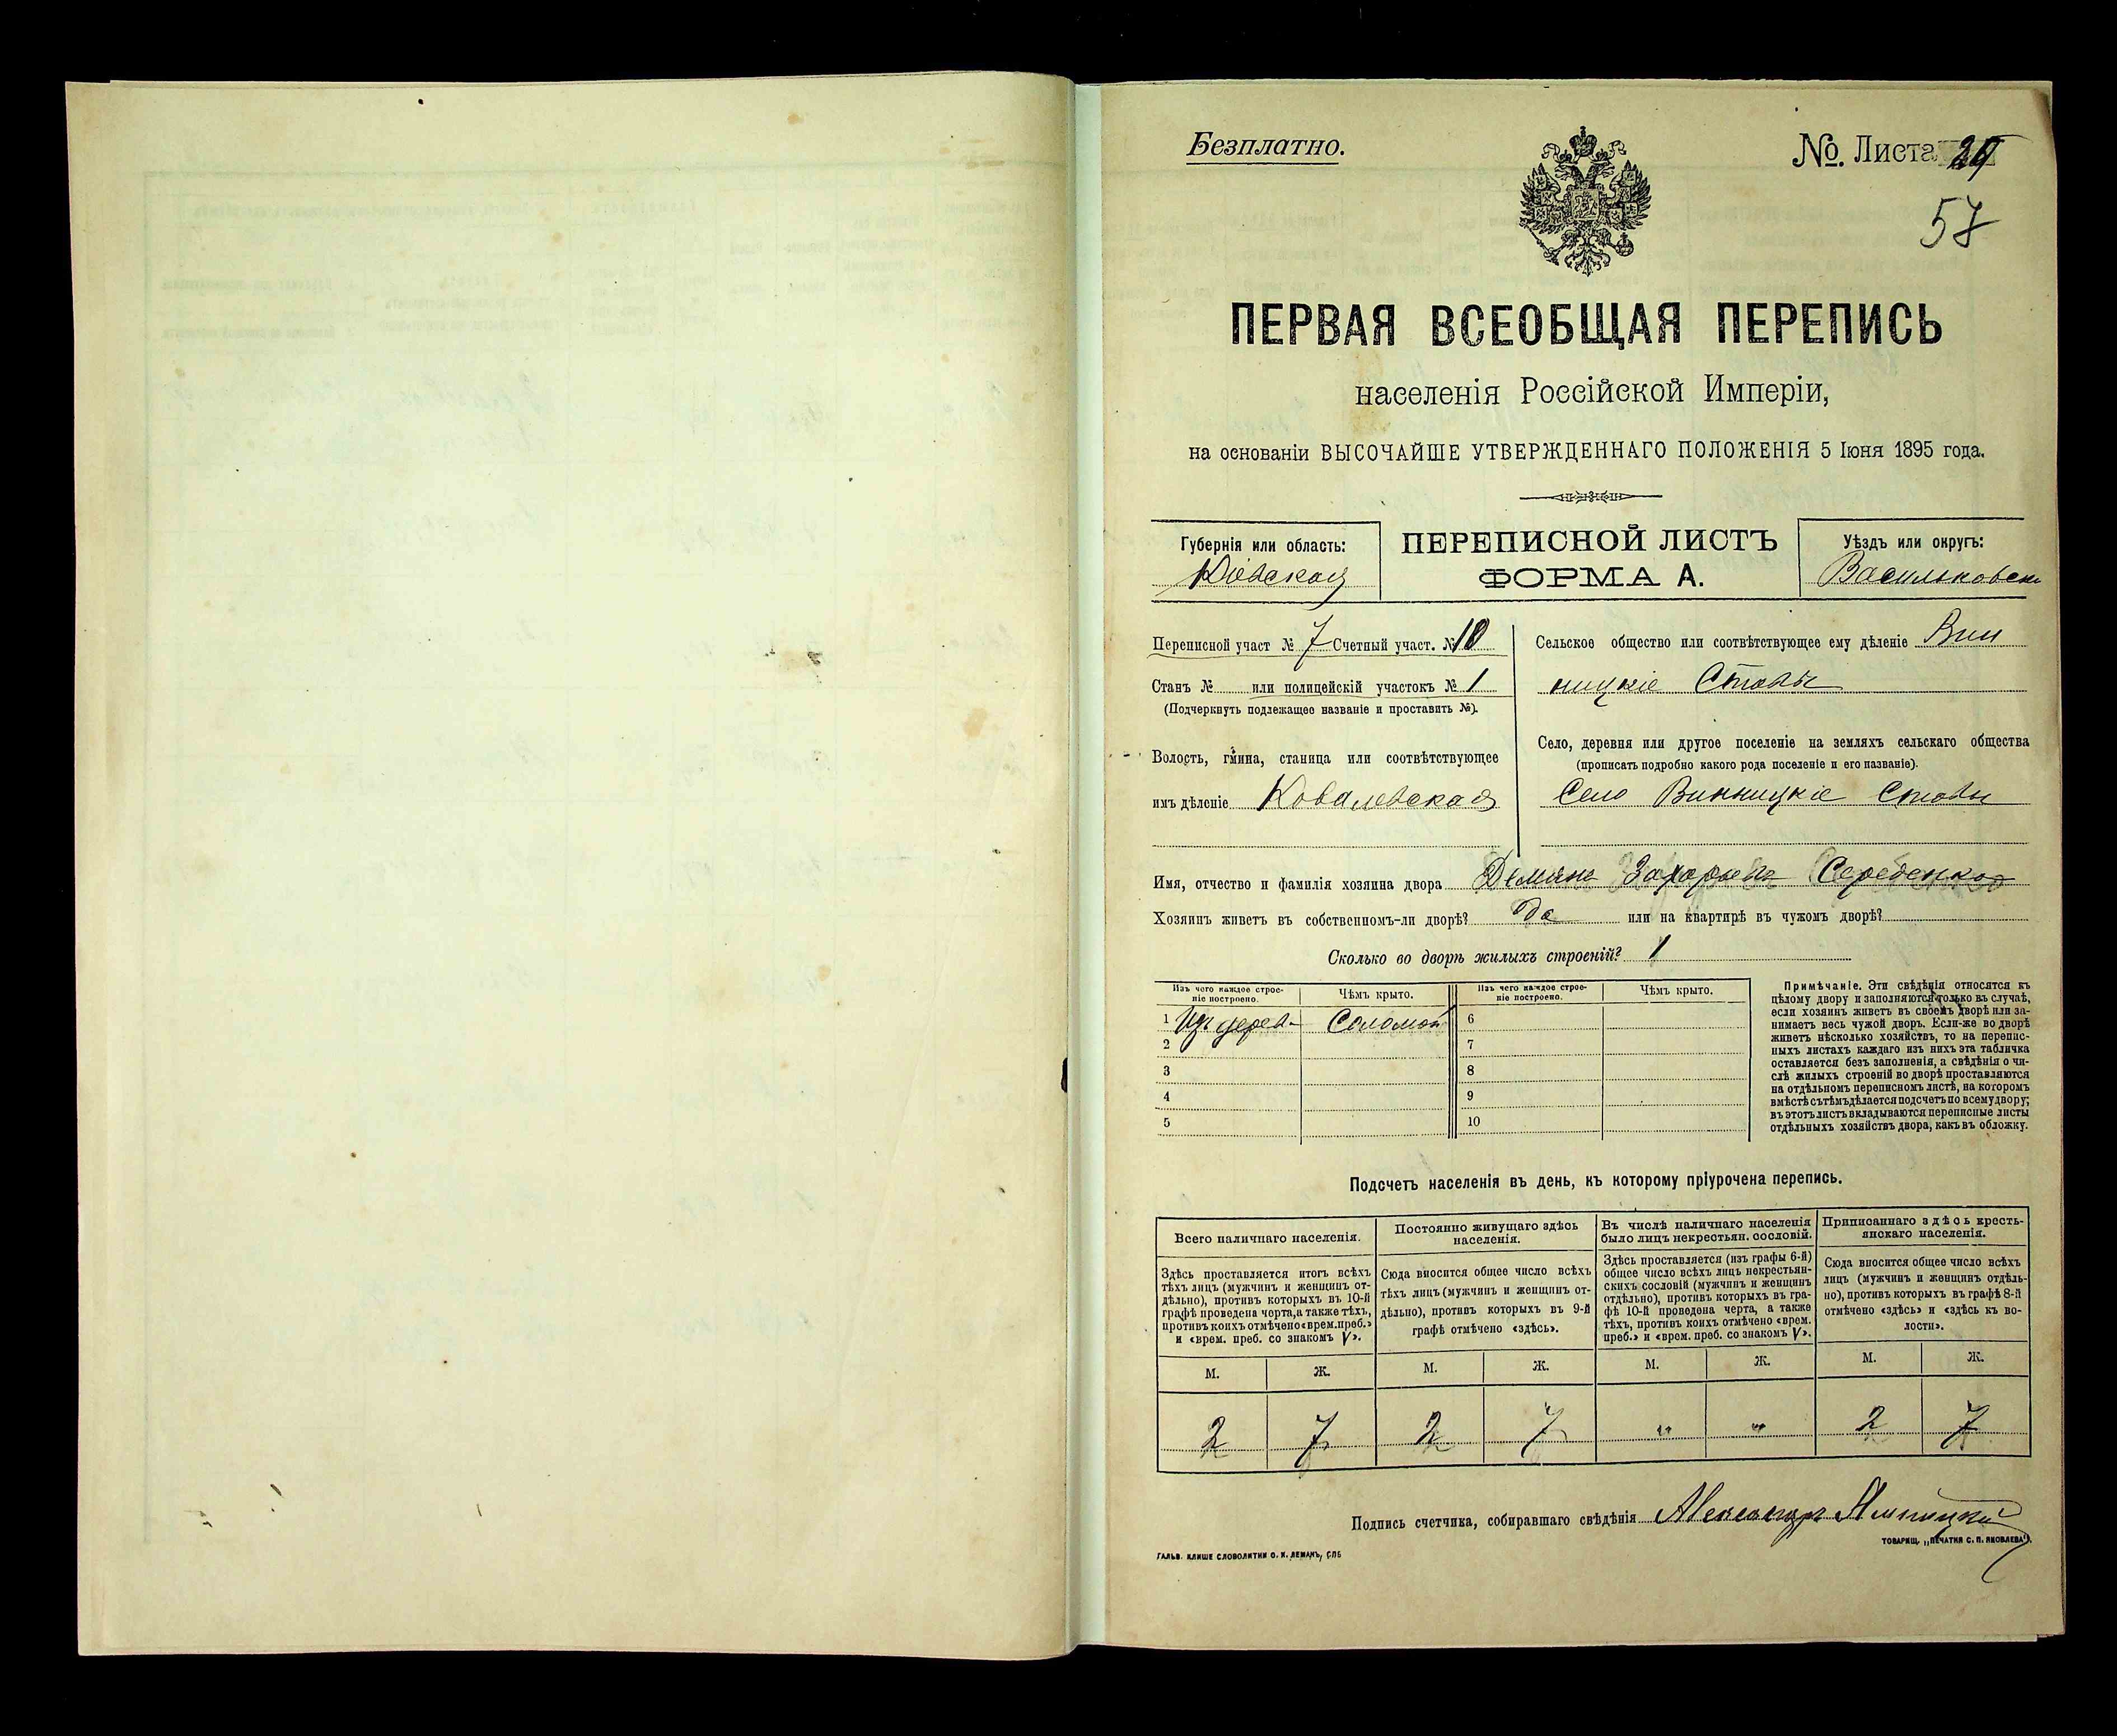 Безплатно.
№. Листа
57
ПЕРВАЯ ВСЕОБЩАЯ ПЕРЕПИСЬ
населенія Россійской Имперіи,
на основаніи ВЫСОЧАЙШЕ УТВЕРЖДЕННАГО ПОЛОЖЕНІЯ 5 Іюня 1895 года.
Губернія или область:
Кіевская
ПЕРЕПИСНОЙ ЛИСТЪ
ФОРМА А.
Уѣздъ или округъ:
Васильковск
Переписной участ № 7 Счетный участ. № 10
Станъ № или полицейскій участокъ № 1
(Подчеркнуть подлежащее названіе и проставить №).
Волость, гмина, станица или соотвѣтствующее
имъ дѣленіе Ковалевская
Сельское общество или соотвѣтствующее ему дѣленіе Вин
ницкіе Ставы
Село, деревня или другое поселеніе на земляхъ сельскаго общества
(прописать подробно какого рода поселеніе и его названіе).
Село Винницкіе Ставы
Имя, отчество и фамилія хозяина двора Демьяна
Хозяинъ живетъ въ собственномъ-ли дворѣ? да или на квартирѣ въ чужомъ дворѣ?
Сколько во дворѣ жилыхъ строеній? 1
Изъ чего каждое строе-
ніе построено.
Чѣмъ крыто.
Изъ чего каждое строе-
ніе построено.
Чѣмъ крыто.
1 Изъ дерев. Соломой 6
2 7
3 8
4 9
5 10
Примѣчаніе. Эти свѣдѣнія относятся къ
цѣлому двору и заполняются только въ случаѣ,
если хозяинъ живетъ въ своемъ дворѣ или за-
нимаетъ весь чужой дворъ. Если-же во дворѣ
живетъ нѣсколько хозяйствъ, то на перепис-
ныхъ листахъ каждаго изъ нихъ эта табличка
оставляется безъ заполненія, а свѣдѣнія о чи-
слѣ жилыхъ строеній во дворѣ проставляются
на отдѣльномъ переписномъ листѣ, на которомъ
вмѣстѣ съ тѣмъ дѣлается подсчетъ по всему двору;
въ этотъ листъ вкладываются переписные листы
отдѣльныхъ хозяйствъ двора, какъ въ обложку.
Подсчетъ населенія въ день, къ которому пріурочена перепись.
Всего наличнаго населенія.
Здѣсь проставляется итогъ всѣхъ
тѣхъ лицъ (мужчинъ и женщинъ от-
дѣльно), противъ которыхъ въ 10-й
графѣ проведена черта, а также тѣхъ,
противъ коихъ отмѣчено «врем. преб.»
и «врем. преб. со знакомъ V».
Постоянно живущаго здѣсь
населенія.
Сюда вносится общее число всѣхъ
тѣхъ лицъ (мужчинъ и женщинъ от-
дѣльно), противъ которыхъ въ 9-й
графѣ отмѣчено «здѣсь».
Въ числѣ наличнаго населенія
было лицъ некрестьян. сословій.
Здѣсь проставляется (изъ графы 6-й)
общее число всѣхъ лицъ некрестьян-
скихъ сословій (мужчинъ и женщинъ
отдѣльно), противъ которыхъ въ гра-
фѣ 10-й проведена черта, а также
тѣхъ, противъ коихъ отмѣчено «врем.
преб.» и «врем. преб. со знакомъ V».
Приписаннаго здѣсь кресть-
янскаго населенія.
Сюда вносится общее число всѣхъ
лицъ (мужчинъ и женщинъ отдѣль-
но), противъ которыхъ въ графѣ 8-й
отмѣчено «здѣсь» и «здѣсь къ во-
лости».
М. Ж. М. Ж. М. Ж. М. Ж.
2 7 2 7 „ „ 2 7
Подпись счетчика, собиравшаго свѣдѣнія Александръ
ТОВАРИЩ. „ПЕЧАТНЯ С. П. ЯКОВЛЕВА“.
ГАЛЬВ. КЛИШЕ СЛОВОЛИТНИ О. И. ЛЕМАНЪ, СПБ